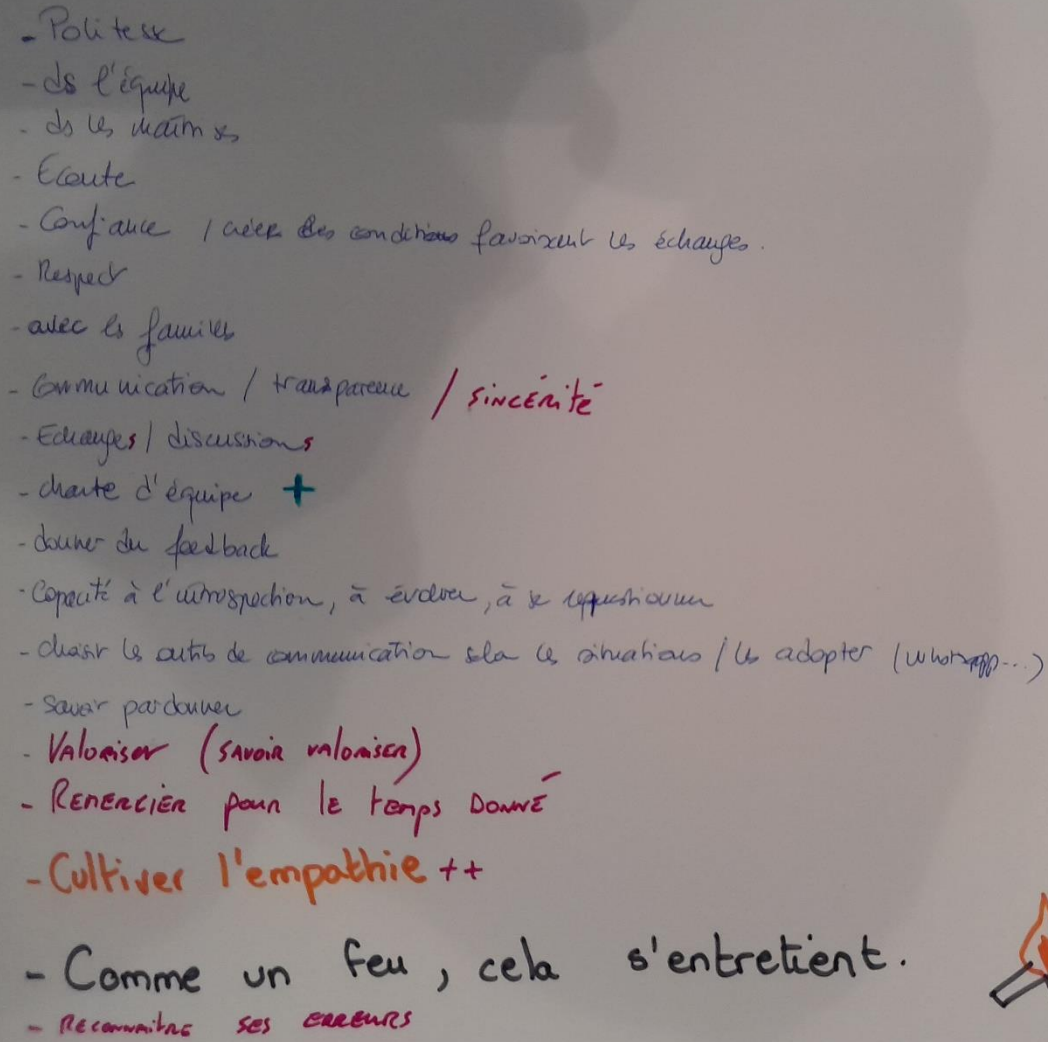 - Politesse
- ds l'équipe
- ds les
- Ecoute
- Confiance / créer des conditions favorisant les échanges.
- Respect
- avec les familles
- Communication / transparence / SINCÉRITÉ
- Echanges / discussions
- charte d'équipe +
- donner du feedback
- Capacité à l'introspection, à évoluer, à se requestionner
- choisir les outils de communication selon les situations / les adapter (whatsapp...)
- Savoir pardonner
- Valoriser (savoir valoriser)
- REMERCIER pour le temps DONNÉ
- Cultiver l'empathie ++
- Comme un feu, cela s'entretient.
- Reconnaitre ses erreurs